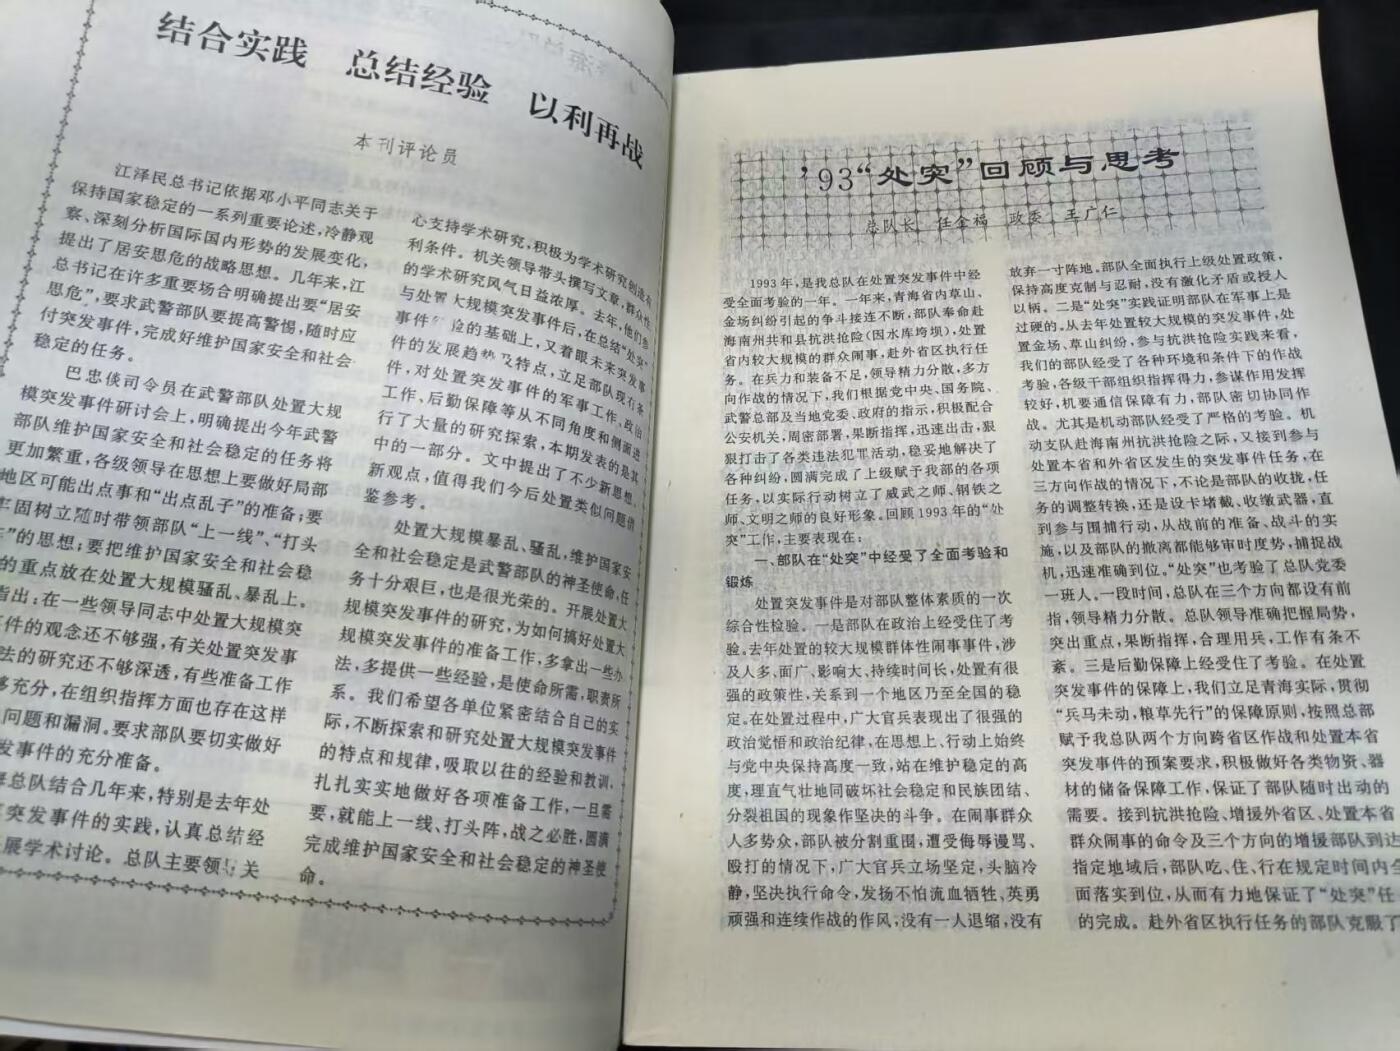 结合实践 总结经验 以利再战
本刊评论员
江泽民总书记依据邓小平同志关于
保持国家稳定的一系列重要论述，冷静观
察、深刻分析国际国内形势的发展变化，
提出了居安思危的战略思想。几年来，江
总书记在许多重要场合明确提出要“居安
思危”，要求武警部队要提高警惕，随时应
付突发事件，完成好维护国家安全和社会
稳定的任务。
巴忠倓司令员在武警部队处置大规
模突发事件研讨会上，明确提出今年武警
部队维护国家安全和社会稳定的任务将
更加繁重，各级领导在思想上要做好局部
地区可能出点事和“出点乱子”的准备；要
牢固树立随时带领部队“上一线”、“打头
”的思想；要把维护国家安全和社会稳
的重点放在处置大规模骚乱、暴乱上。
指出：在一些领导同志中处置大规模突
事件的观念还不够强，有关处置突发事
法的研究还不够深透，有些准备工作
够充分，在组织指挥方面也存在这样
问题和漏洞。要求部队要切实做好
发事件的充分准备。
总队结合几年来，特别是去年处
突发事件的实践，认真总结经
展学术讨论。总队主要领导关
心支持学术研究，积极为学术研究创造有
利条件。机关领导带头撰写文章，群众性
的学术研究风气日益浓厚。去年，他们参
与处置大规模突发事件后，在总结“处突”
事件经验的基础上，又着眼未来突发事
件的发展趋势及特点，立足部队现有条
件，对处置突发事件的军事工作、政治
工作、后勤保障等从不同角度和侧面进
行了大量的研究探索，本期发表的是其
中的一部分。文中提出了不少新思想、
新观点，值得我们今后处置类似问题借
鉴参考。
处置大规模暴乱、骚乱，维护国家安
全和社会稳定是武警部队的神圣使命，任
务十分艰巨，也是很光荣的。开展处置大
规模突发事件的研究，为如何搞好处置大
规模突发事件的准备工作，多拿出一些办
法，多提供一些经验，是使命所需，职责所
系。我们希望各单位紧密结合自己的实
际，不断探索和研究处置大规模突发事件
的特点和规律，吸取以往的经验和教训，
扎扎实实地做好各项准备工作，一旦需
要，就能上一线、打头阵，战之必胜，圆满
完成维护国家安全和社会稳定的神圣使
命。
’93“处突”回顾与思考
总队长 任金福 政委 王广仁
1993年，是我总队在处置突发事件中经
受全面考验的一年。一年来，青海省内草山、
金场纠纷引起的争斗接连不断，部队奉命赴
海南州共和县抗洪抢险（因水库垮坝），处置
省内较大规模的群众闹事，赴外省区执行任
务。在兵力和装备不足，领导精力分散，多方
向作战的情况下，我们根据党中央、国务院、
武警总部及当地党委、政府的指示，积极配合
公安机关，周密部署，果断指挥，迅速出击，狠
狠打击了各类违法犯罪活动，稳妥地解决了
各种纠纷，圆满完成了上级赋予我部的各项
任务，以实际行动树立了威武之师、钢铁之
师、文明之师的良好形象。回顾1993年的“处
突”工作，主要表现在：
一、部队在“处突”中经受了全面考验和
锻炼
处置突发事件是对部队整体素质的一次
综合性检验。一是部队在政治上经受住了考
验。去年处置的较大规模群体性闹事事件，涉
及人多、面广、影响大、持续时间长，处置有很
强的政策性，关系到一个地区乃至全国的稳
定。在处置过程中，广大官兵表现出了很强的
政治觉悟和政治纪律，在思想上、行动上始终
与党中央保持高度一致，站在维护稳定的高
度，理直气壮地同破坏社会稳定和民族团结、
分裂祖国的现象作坚决的斗争。在闹事群众
人多势众，部队被分割重围，遭受侮辱谩骂、
殴打的情况下，广大官兵立场坚定，头脑冷
静，坚决执行命令，发扬不怕流血牺牲、英勇
顽强和连续作战的作风，没有一人退缩，没有
放弃一寸阵地。部队全面执行上级处置政策，
保持高度克制与忍耐，没有激化矛盾或授人
以柄。二是“处突”实践证明部队在军事上是
过硬的。从去年处置较大规模的突发事件，处
置金场、草山纠纷，参与抗洪抢险实践来看，
我们的部队经受了各种环境和条件下的作战
考验，各级干部组织指挥得力，参谋作用发挥
较好，机要通信保障有力，部队密切协同作
战。尤其是机动部队经受了严格的考验。机
动支队赴海南州抗洪抢险之际，又接到参与
处置本省和外省区发生的突发事件任务，在
三方向作战的情况下，不论是部队的收拢，任
务的调整转换，还是设卡堵截、收缴武器，直
到参与围捕行动，从战前的准备、战斗的实
施，以及部队的撤离都能够审时度势，捕捉战
机，迅速准确到位。“处突”也考验了总队党委
一班人。一段时间，总队在三个方向都设有前
指，领导精力分散。总队领导准确把握局势，
突出重点，果断指挥，合理用兵，工作有条不
紊。三是后勤保障上经受住了考验。在处置
突发事件的保障上，我们立足青海实际，贯彻
“兵马未动，粮草先行”的保障原则，按照总部
赋予我总队两个方向跨省区作战和处置本省
突发事件的预案要求，积极做好各类物资、器
材的储备保障工作，保证了部队随时出动的
需要。接到抗洪抢险、增援外省区、处置本省
群众闹事的命令及三个方向的增援部队到达
指定地域后，部队吃、住、行在规定时间内全
面落实到位，从而有力地保证了“处突”任
的完成。赴外省区执行任务的部队克服了